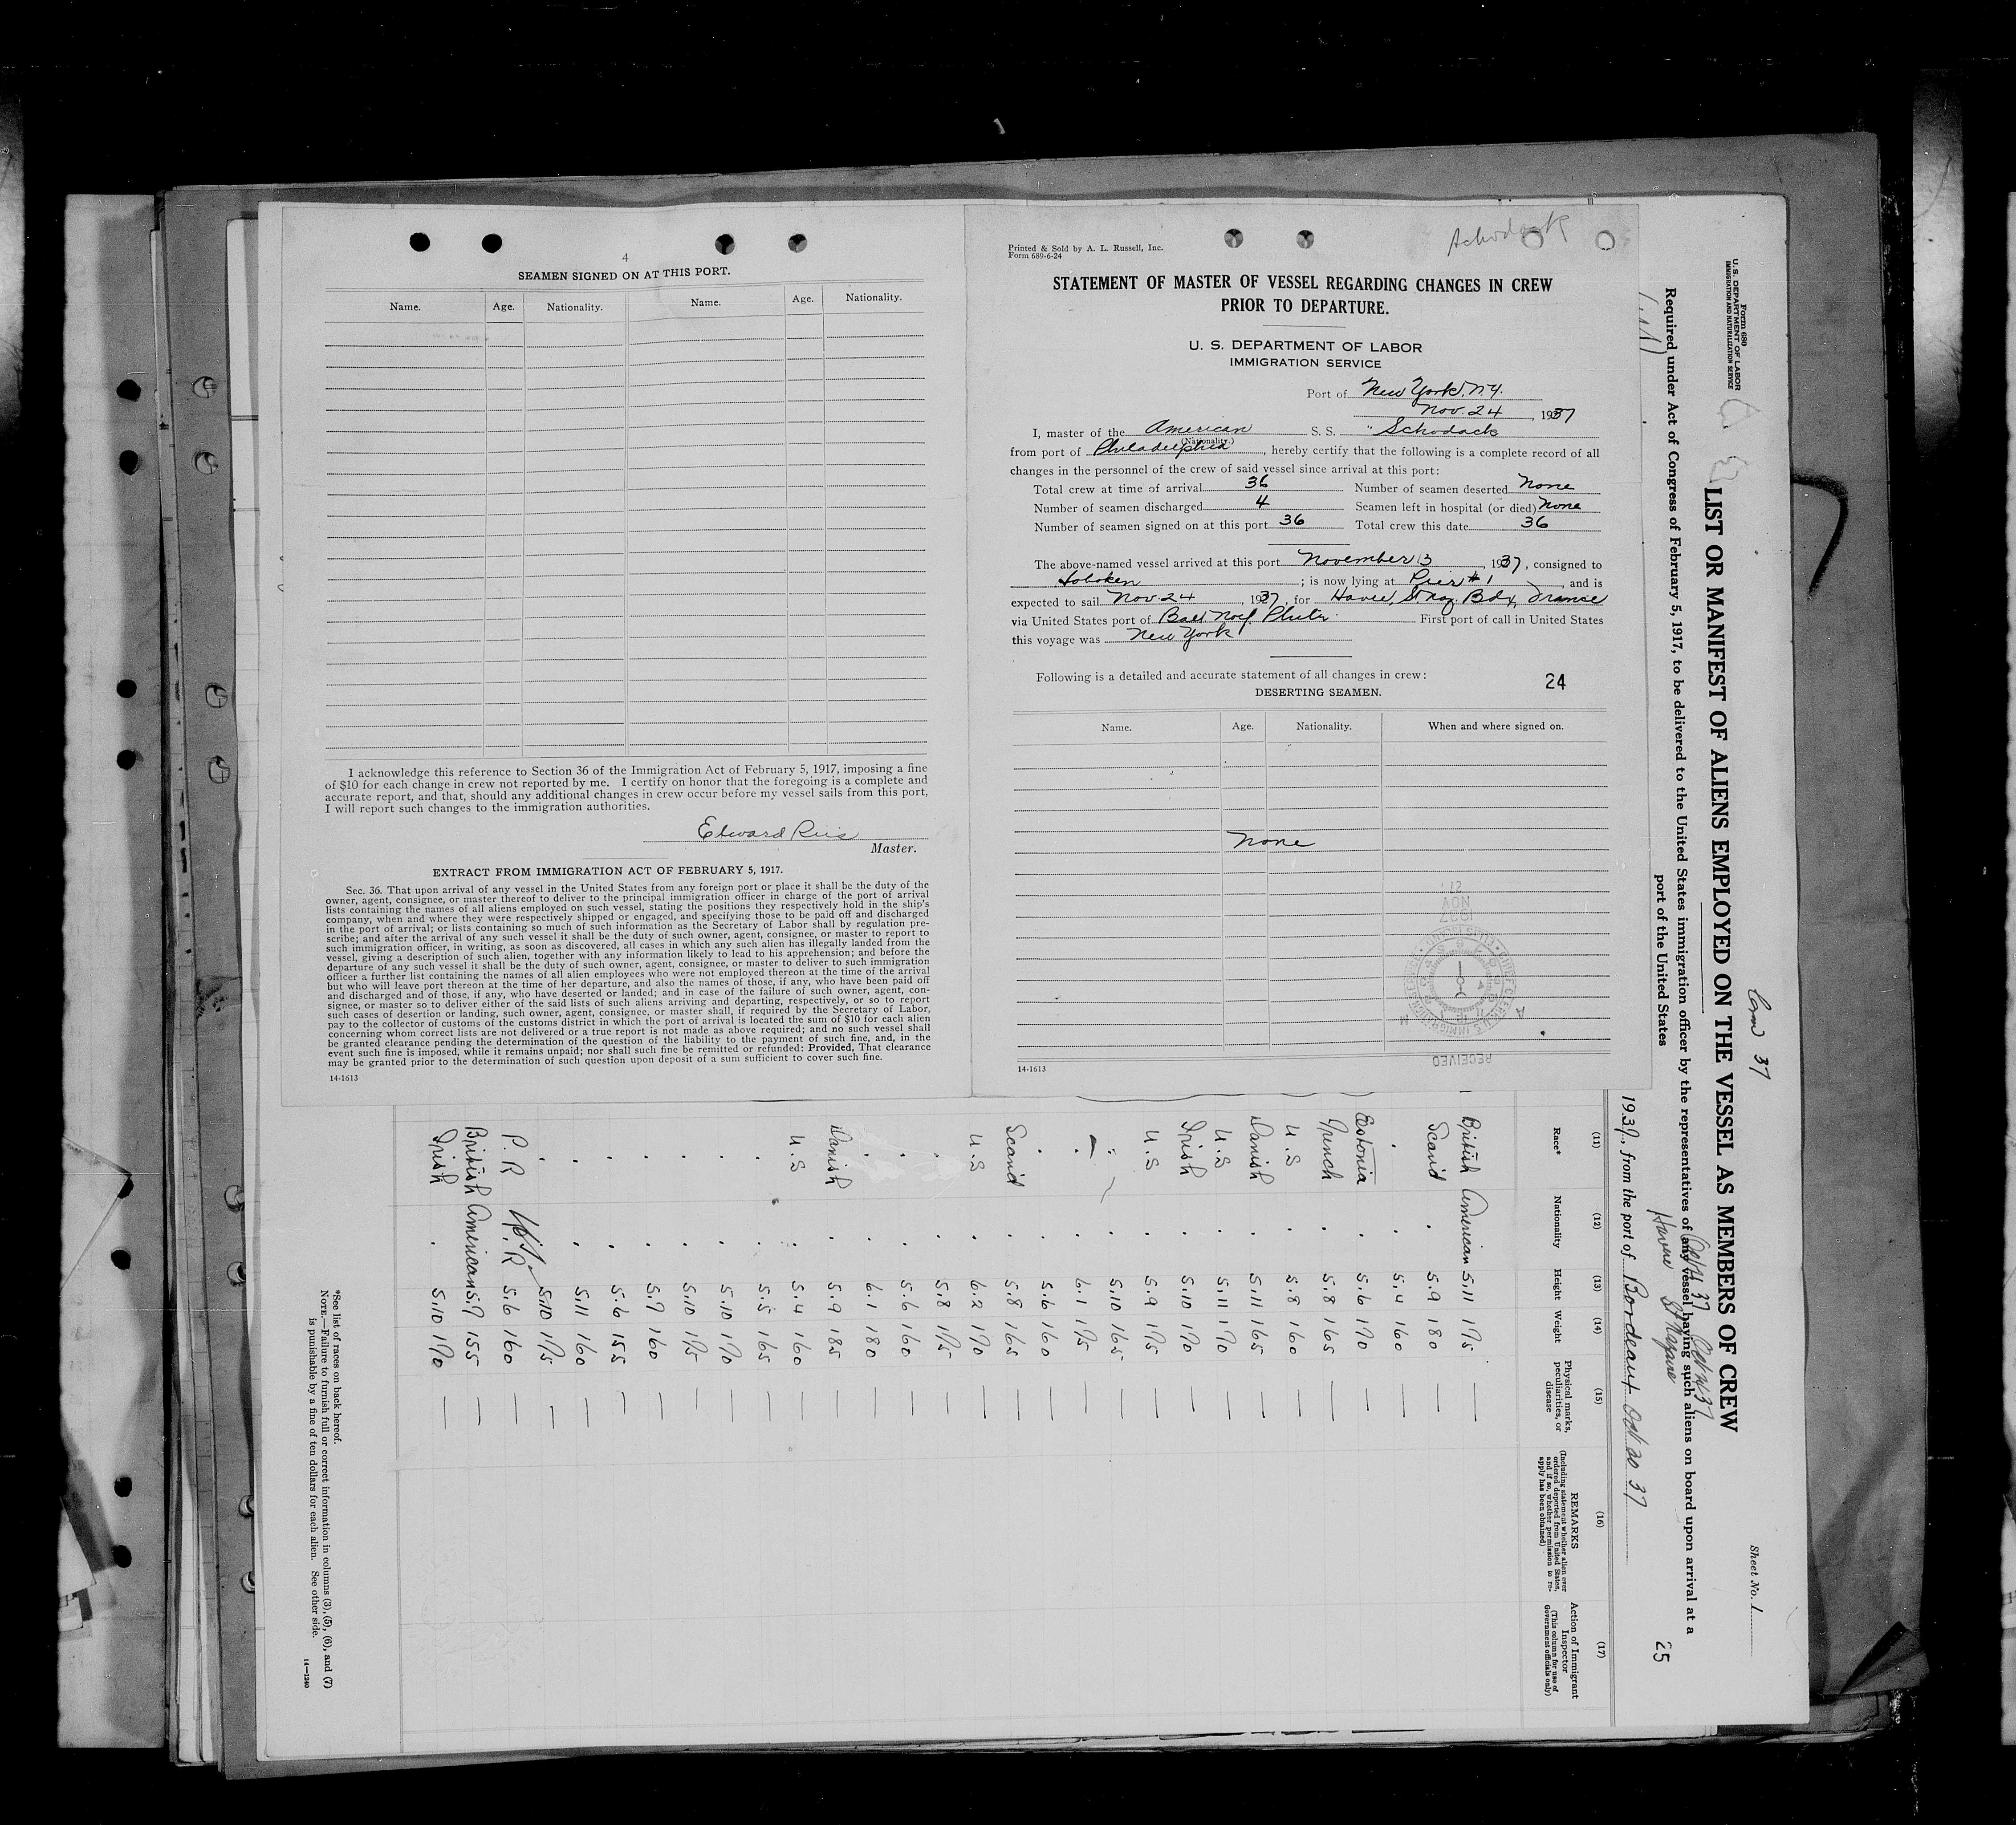 4
SEAMEN SIGNED ON AT THIS PORT.
Name. Age. Nationality. Name. Age. Nationality.
I acknowledge this reference to Section 36 of the Immigration Act of February 5, 1917, imposing a fine
of $10 for each change in crew not reported by me. I certify on honor that the foregoing is a complete and
accurate report, and that, should any additional changes in crew occur before my vessel sails from this port,
I will report such changes to the immigration authorities.
Edward
Master.
EXTRACT FROM IMMIGRATION ACT OF FEBRUARY 5, 1917.
Sec. 36. That upon arrival of any vessel in the United States from any foreign port or place it shall be the duty of the
owner, agent, consignee, or master thereof to deliver to the principal immigration officer in charge of the port of arrival
lists containing the names of all aliens employed on such vessel, stating the positions they respectively hold in the ship's
company, when and where they were respectively shipped or engaged, and specifying those to be paid off and discharged
in the port of arrival; or lists containing so much of such information as the Secretary of Labor shall by regulation pre-
scribe; and after the arrival of any such vessel it shall be the duty of such owner, agent, consignee, or master to report to
such immigration officer, in writing, as soon as discovered, all cases in which any such alien has illegally landed from the
vessel, giving a description of such alien, together with any information likely to lead to his apprehension; and before the
departure of any such vessel it shall be the duty of such owner, agent, consignee, or master to deliver to such immigration
officer a further list containing the names of all alien employees who were not employed thereon at the time of the arrival
but who will leave port thereon at the time of her departure, and also the names of those, if any, who have been paid off
and discharged and of those, if any, who have deserted or landed; and in case of the failure of such owner, agent, con-
signee, or master so to deliver either of the said lists of such aliens arriving and departing, respectively, or so to report
such cases of desertion or landing, such owner, agent, consignee, or master shall, if required by the Secretary of Labor,
pay to the collector of customs of the customs district in which the port of arrival is located the sum of $10 for each alien
concerning whom correct lists are not delivered or a true report is not made as above required; and no such vessel shall
be granted clearance pending the determination of the question of the liability to the payment of such fine, and, in the
event such fine is imposed, while it remains unpaid; nor shall such fine be remitted or refunded: Provided, That clearance
may be granted prior to the determination of such question upon deposit of a sum sufficient to cover such fine.
14-1613
Schodack
Printed & Sold by A. L. Russell, Inc.
Form 689-6-24
STATEMENT OF MASTER OF VESSEL REGARDING CHANGES IN CREW
PRIOR TO DEPARTURE.
U. S. DEPARTMENT OF LABOR
IMMIGRATION SERVICE
Port of New York, N.Y.
Nov. 24, 1937
I, master of the American S. S. "Schodack
(Nationality.)
from port of Philadelphia, hereby certify that the following is a complete record of all
changes in the personnel of the crew of said vessel since arrival at this port:
Total crew at time of arrival 36 Number of seamen deserted None
Number of seamen discharged 4 Seamen left in hospital (or died) None
Number of seamen signed on at this port 36 Total crew this date 36
The above-named vessel arrived at this port November 3, 1937, consigned to
Hoboken; is now lying at Pier #1, and is
expected to sail Nov 24, 1937, for Havre, St. Naz. Bdx, France
via United States port of Balt Norf. First port of call in United States
this voyage was New York
Following is a detailed and accurate statement of all changes in crew: 24
DESERTING SEAMEN.
Name. Age. Nationality. When and where signed on.
None
NOV
1937
RECEIVED
14-1613
Form 680
U. S. DEPARTMENT OF LABOR
IMMIGRATION AND NATURALIZATION SERVICE
37
Sheet No. 1
LIST OR MANIFEST OF ALIENS EMPLOYED ON THE VESSEL AS MEMBERS OF CREW
Required under Act of Congress of February 5, 1917, to be delivered to the United States immigration officer by the representatives of any vessel having such aliens on board upon arrival at a
port of the United States
Havre St Nazaire
25
1937, from the port of Bordeaux Oct 20 37
(11) (12) (13) (14) (15) (16) (17)
Race* Nationality Height Weight Physical marks, peculiarities, or disease REMARKS (Including statement whether alien ever ordered deported from United States, and if so, whether permission to re-apply has been obtained) Action of Immigrant Inspector (This column for use of Government officials only)
British American 5.11 175 —
Scand . 5.9 180 —
. . 5.4 160 —
Estonia . 5.6 170 —
French . 5.8 165 —
U.S . 5.8 160 —
Danish . 5.11 165 —
U.S . 5.11 170 —
Irish . 5.10 170 —
U.S . 5.9 175 —
. . 5.10 165 —
. 6.1 175 —
. . 5.6 160 —
Scand . 5.8 165 —
U.S . 6.2 170 —
. . 5.8 175 —
. . 5.6 160 —
. . 6.1 180 —
Danish . 5.9 185 —
U.S . 5.4 160 —
. . 5.5 165 —
. . 5.10 170 —
. . 5.10 175 —
. . 5.7 160 —
. . 5.6 155 —
. . 5.11 160 —
. 5.10 175 —
P.R P.R 5.6 160 —
British American 5.7 155 —
Irish . 5.10 170 —
*See list of races on back hereof.
NOTE.—Failure to furnish full or correct information in columns (3), (5), (6), and (7)
is punishable by a fine of ten dollars for each alien. See other side.
14—1240